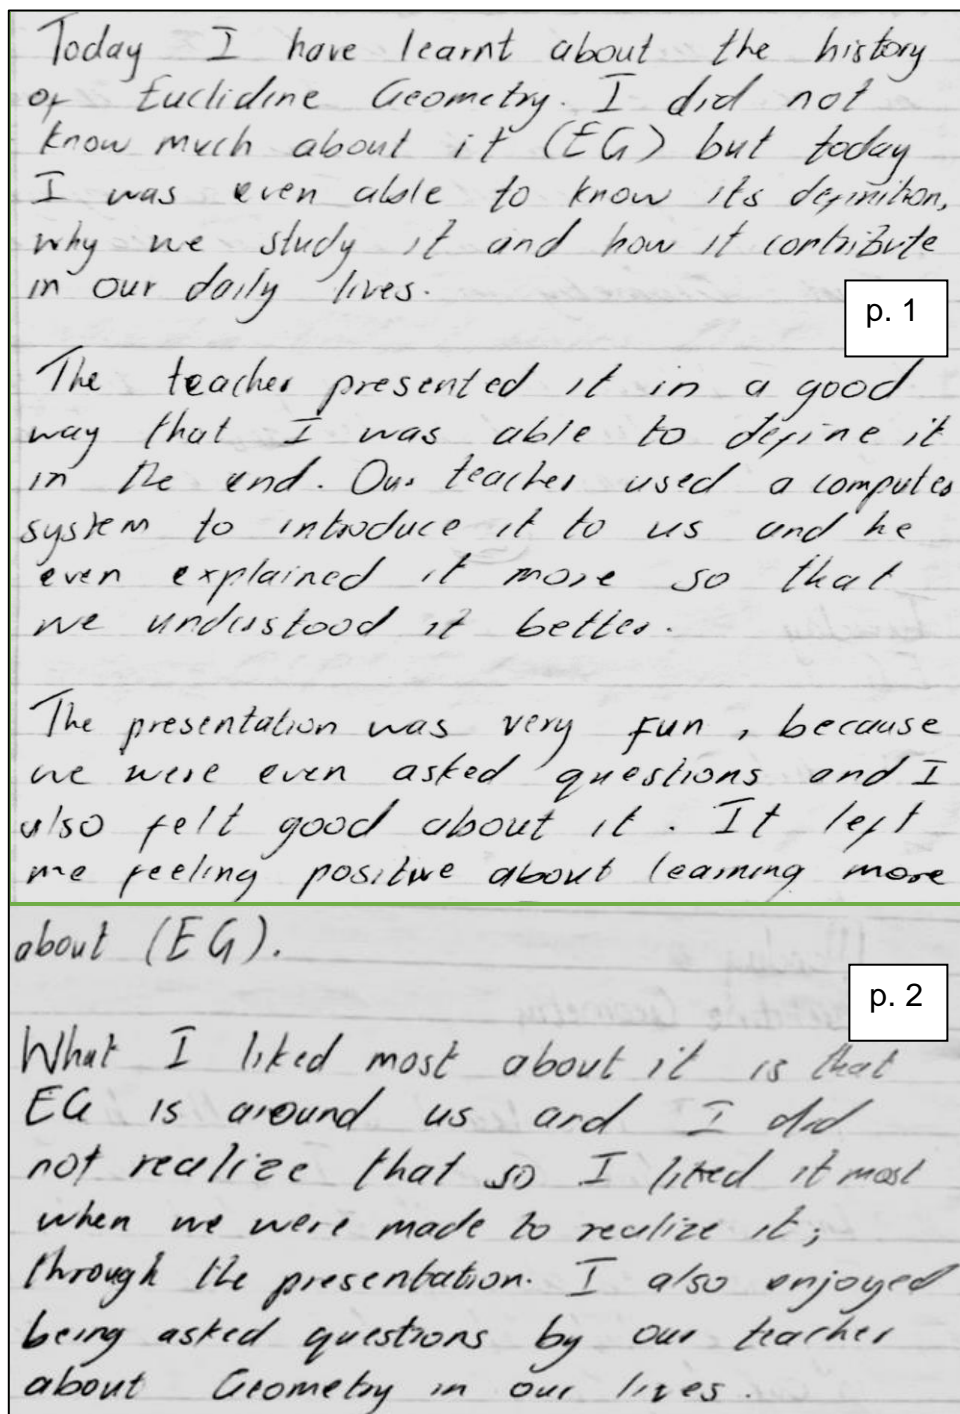 Today I have learnt about the history
of Euclidine Geometry. I did not
know much about it (EG) but today
I was even able to know its definition,
why we study it and how it contribute
in our daily lives.
p. 1
The teacher presented it in a good
way that I was able to define it
in the end. Our teacher used a computer
system to introduce it to us and he
even explained it more so that
we understood it better.
The presentation was very fun, because
we were even asked questions and I
also felt good about it. It left
me feeling positive about learning more
about (EG).
p. 2
What I liked most about it is that
EG is around us and I did
not realize that so I liked it most
when we were made to realize it;
through the presentation. I also enjoyed
being asked questions by our teacher
about Geometry in our lives.